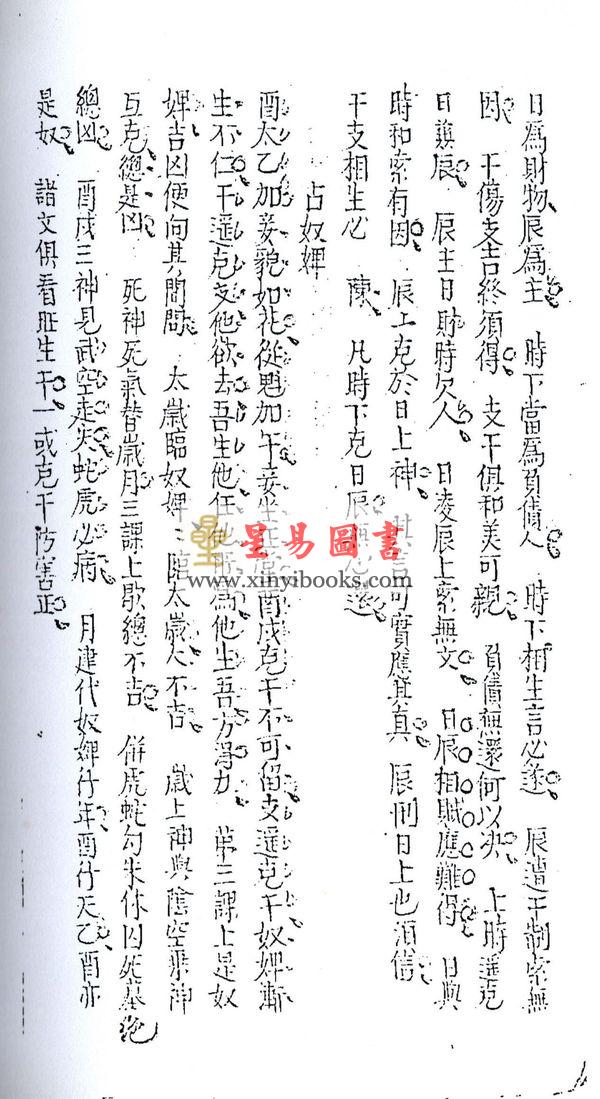 日為財物辰為主　時下當為負債人　時下相生言必遂　辰遭干制索無
因　干傷支吉終須得　支干俱和美可親　負債無還何以決　上時遥克
日兼辰　辰主日財時欠人　日凌辰上索無文　日辰相賊應難得　日與
時和索有因　辰上克於日上神　可實應其真　辰刑日上也須信
干支相生必　陳　凡時下克日辰
占奴婢
酉太乙加妾貌如花從魁加午妾　酉戌克干不可留支遥克干奴婢漸
生不仁干遥克支他欲去吾生他任他　為他生吾方得力　第三課上是奴
婢吉凶便向其間問　太歲臨奴婢　臨太歲　不吉　歲上神與陰空乘神
互克總是凶　死神死氣替歲月三課上歇總不吉　併虎蛇勾朱休囚死墓絶
總凶　酉戌三神見武空走失蛇虎必病　月建代奴婢行年酉行天乙酉亦
是奴　諸文俱看旺生干一或克干防害正
星易圖書
www.xinyibooks.com